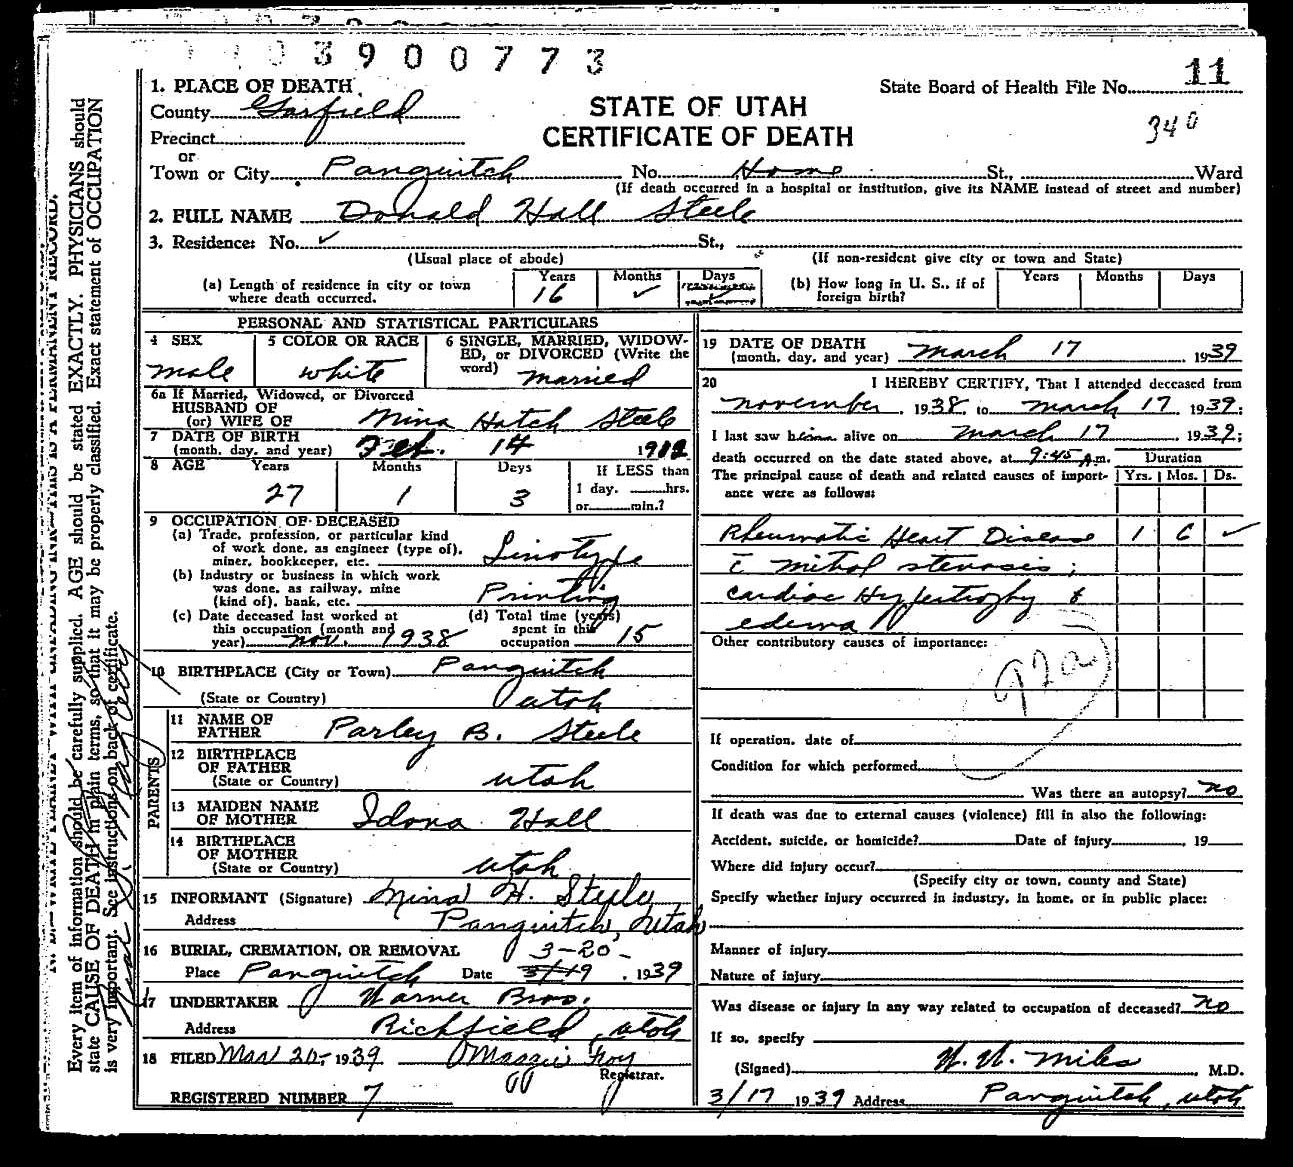 3900773
1. PLACE OF DEATH
State Board of Health File No. 11
County Garfield
STATE OF UTAH
CERTIFICATE OF DEATH
340
Precinct
or
Town or City Panguitch No. Home St., Ward
(If death occurred in a hospital or institution, give its NAME instead of street and number)
2. FULL NAME Donald Hall Steele
3. Residence: No. ✓ St.,
(Usual place of abode) (If non-resident give city or town and State)
(a) Length of residence in city or town where death occurred. Years 16 Months ✓ Days ✓
(b) How long in U. S., if of foreign birth? Years Months Days
PERSONAL AND STATISTICAL PARTICULARS
4 SEX male
5 COLOR OR RACE white
6 SINGLE, MARRIED, WIDOWED, or DIVORCED (Write the word) married
6a If Married, Widowed, or Divorced
HUSBAND OF
(or) WIFE OF Mina Hatch Steele
7 DATE OF BIRTH
(month, day, and year) Feb. 14 1912
8 AGE Years 27 Months 1 Days 3 If LESS than 1 day, hrs. or min.?
9 OCCUPATION OF DECEASED
(a) Trade, profession, or particular kind
of work done, as engineer (type of),
miner, bookkeeper, etc. Linotype
(b) Industry or business in which work
was done, as railway, mine
(kind of), bank, etc. Printing
(c) Date deceased last worked at
this occupation (month and
year) Nov. 1938
(d) Total time (years)
spent in this
occupation 15
10 BIRTHPLACE (City or Town) Panguitch
(State or Country) Utah
PARENTS
11 NAME OF
FATHER Parley B. Steele
12 BIRTHPLACE
OF FATHER
(State or Country) Utah
13 MAIDEN NAME
OF MOTHER Idona Hall
14 BIRTHPLACE
OF MOTHER
(State or Country) Utah
15 INFORMANT (Signature) Mina H. Steele
Address Panguitch, Utah
16 BURIAL, CREMATION, OR REMOVAL 3-20-
Place Panguitch Date 3/19, 1939
17 UNDERTAKER Warner Bros.
Address Richfield, Utah
18 FILED Mar 20- 1939 Maggie Foy
Registrar.
REGISTERED NUMBER 7
19 DATE OF DEATH
(month, day, and year) March 17 1939
20 I HEREBY CERTIFY, That I attended deceased from
November, 1938, to March 17, 1939;
I last saw him alive on March 17, 1939;
death occurred on the date stated above, at 9:45 A.m. Duration
The principal cause of death and related causes of import- Yrs. Mos. Ds.
ance were as follows:
Rheumatic Heart Disease 1 6 ✓
c̄ mitral stenosis;
cardiac Hypertrophy &
edema
Other contributory causes of importance:
92a
If operation, date of
Condition for which performed
Was there an autopsy? no
If death was due to external causes (violence) fill in also the following:
Accident, suicide, or homicide? Date of injury, 19
Where did injury occur?
(Specify city or town, county and State)
Specify whether injury occurred in industry, in home, or in public place:
Manner of injury
Nature of injury
Was disease or injury in any way related to occupation of deceased? no
If so, specify
(Signed) W. W. Miles, M.D.
3/17 1939 Address Panguitch, Utah
Every item of information should be carefully supplied. AGE should be stated EXACTLY. PHYSICIANS should
state CAUSE OF DEATH in plain terms, so that it may be properly classified. Exact statement of OCCUPATION
is very important. See instructions on back of certificate.